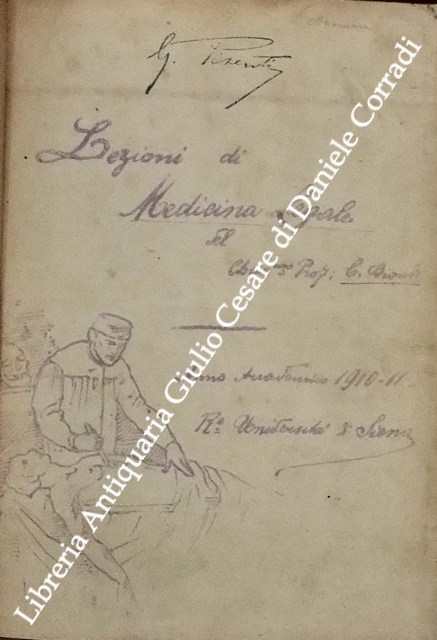 G. Pisenti
Lezioni di
Medicina Legale
del
Prof: C. Biondi
Anno Accademico 1910-11.
R.ª Università di Siena
Libreria Antiquaria Giulio Cesare di Daniele Corradi